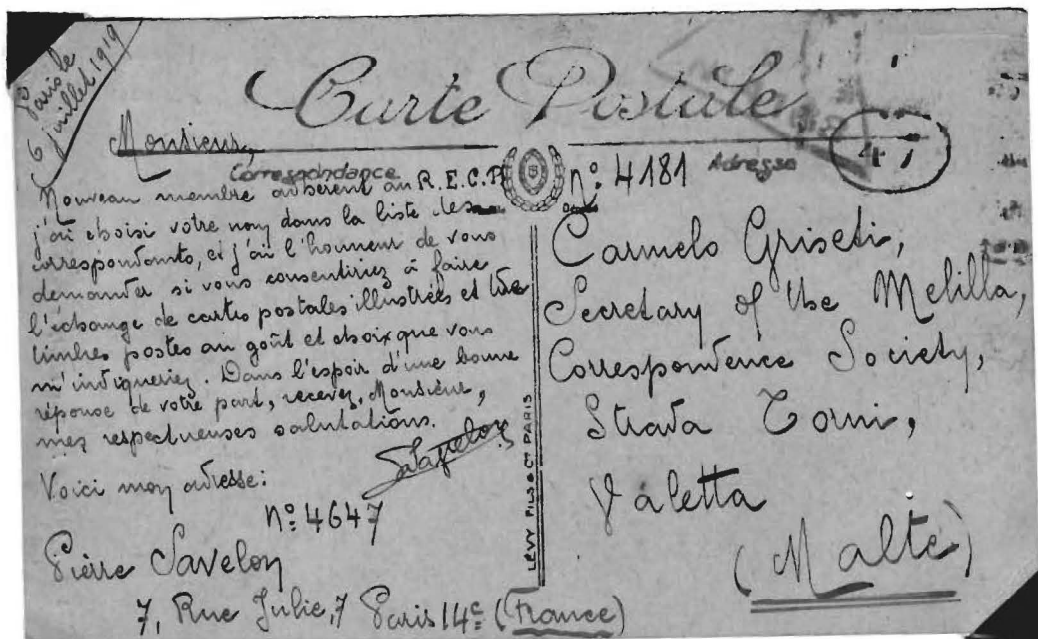 Paris le
6 juillet 1919
Carte Postale
Monsieur,
Correspondance
Adresse
Nouveau membre adhérent au R.E.C.P.
j'ai choisi votre nom dans la liste des
correspondants, et j'ai l'honneur de vous
demander si vous consentiriez à faire
l'échange de cartes postales illustrées et de
timbres postes au goût et choix que vous
m'indiqueriez. Dans l'espoir d'une bonne
réponse de votre part, recevez, Monsieur,
mes respectueuses salutations.
Voici mon adresse:
nº 4647
Pierre Savelon
7, Rue Julie, 7 Paris 14e (France)
LÉVY FILS & Cie PARIS
nº 4181
47
Carmelo Griseti,
Secretary of the Melilla,
Correspondence Society,
Strada Torni,
Valetta
(Malte)